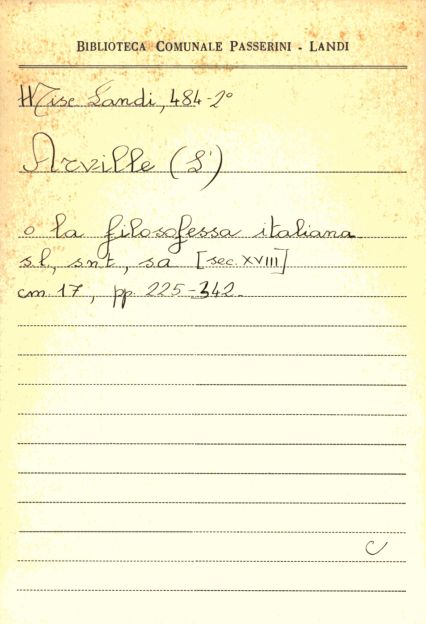 BIBLIOTECA COMUNALE PASSERINI - LANDI
Misc Landi, 484-2°
Arville (L')
o la filosofessa italiana
s.l., s.n.t., s.a [sec. XVIII]
cm. 17, pp. 225-342.
C